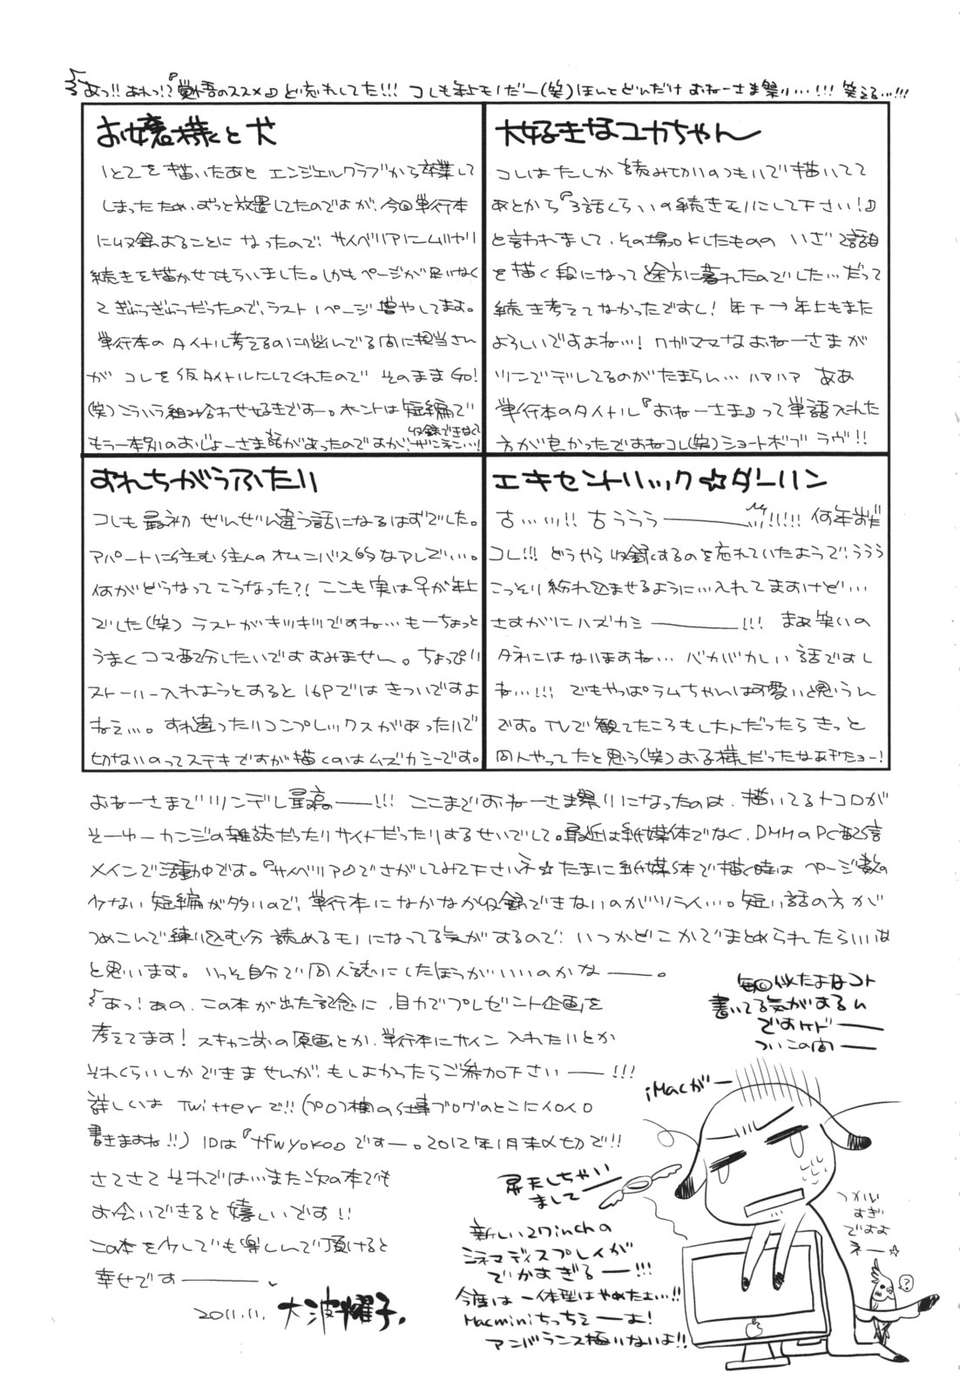 あっ!! あれっ!? 『覚悟のススメ』ど忘れしてた!!! コレも年上モノだー(笑) ほんとどんだけ おねーさま祭り…!!! 笑える…!!!
お嬢様と犬
1と2を描いたあと エンジェルクラブから卒業して
しまったため、ずっと放置してたのですが、今回単行本
に収録することに なったので、サイベリアにムリヤリ
続きを描かせてもらいました。しかもページが足りなく
て ぎゅうぎゅうだったので、ラスト1ページ増やしてます。
単行本の タイトル考えるのに悩んでる間に担当さん
が コレを仮タイトルにしてくれたので そのままGO!
(笑) こういう組み合わせ好きですー。ホントは 短編で
もう一本別のおじょーさま話があったのですが、ザンネン…!
収録できなくて
大好きなユカちゃん
コレはたしか 読み切りのつもりで描いてて
あとから『3話くらいの続きモノにして下さい!』
と言われまして、その場OKしたものの いざ 2話目
を描く段になって途方に暮れたのでした… だって
続き考えてなかったですし! 年下→年上もまた
よろしいですよね…! ワガママなおねーさまが
ツンでデレしてるのがたまらん… ハアハア ああ
単行本のタイトル『おねーさま』って単語入れた
方が良かったですねコレ(笑) ショートボブ ラヴ!!
すれちがうふたり
コレも 最初 ぜんぜん違う話になるはずでした。
アパートに住む住人のオムニバス的なアレで…。
何がどうなってこうなった?! ここも実は♀が年上
でした(笑) ラストがギリギリですね… もーちょっと
うまく コマ配分したいです すみません〜。ちょっぴり
ストーリー入れようとすると 16Pでは きついですよ
ねぇ…。すれ違ったりコンプレックスがあったりで
切ないのってステキですが描くのはムズカシーです。
エキセントリック☆ダーリン
古…ッ!! 古うううーッ!!!!! 何年前だ
コレ!!! どうやら 収録するのを忘れていたようで、ううう
こっそり紛れ込ませるように…入れてますけど…
さすがに ハズカシー!!! まぁ笑いの
タネにはなりますね… バカバカしい 話ですし
ね…!!! でもやっぱラムちゃんは可愛いと思うん
です。TVで観てたころもし大人だったら きっと
同人やってたと思う(笑) お子様だったなあたしゃー!
おねーさまでツンデレ最高ー!!! ここまでおねーさま祭りになったのは、描いてるトコロが
そーゆーカンジの雑誌だったりサイトだったりするせいでして。最近は紙媒体でなく、DMMのPC配信
メインで活動中です。『サイベリア』でさがしてみて下さいネ☆ たまに紙媒体で描く時は ページ数の
少ない 短編が多いので、単行本に なかなか収録できないのがツライ…。短い話の方が
つめこんで練り込む分 読めるモノになってる気がするので、いつかどこかでまとめられたらいいな
と思います。いっそ自分で同人誌にしたほうがいいのかなー。
あっ! あの、この本が出た記念に、自力でプレゼント企画を
考えてます! スキャン前の原画とか、単行本にサイン入れたいとか
それくらいしか できませんが、もしよかったらご参加下さいー!!!
詳しくは Twitterで!! (プロフ欄の仕事ブログのとこにイロイロ
書きますね!!) IDは『ffwyoko』ですー。2012年1月末〆切で!!
さてさて それでは…また次の本でも
お会いできると嬉しいです!!
この本を少しでも楽しんで頂けると
幸せですー。
2011.11. 大波耀子.
毎回似たよなコト
書いてる気がするん
ですケドー
ついこの間ー
iMacがー
昇天しちゃい
ましてー
新しい27inchの
シネマディスプレイが
でかすぎるー!!!
今度は 一体型はやめたよ…!!
Macminiちっちぇーよ!
アンバランス極りないよ!!
つかい
すぎ
ですよ
ネー☆
?